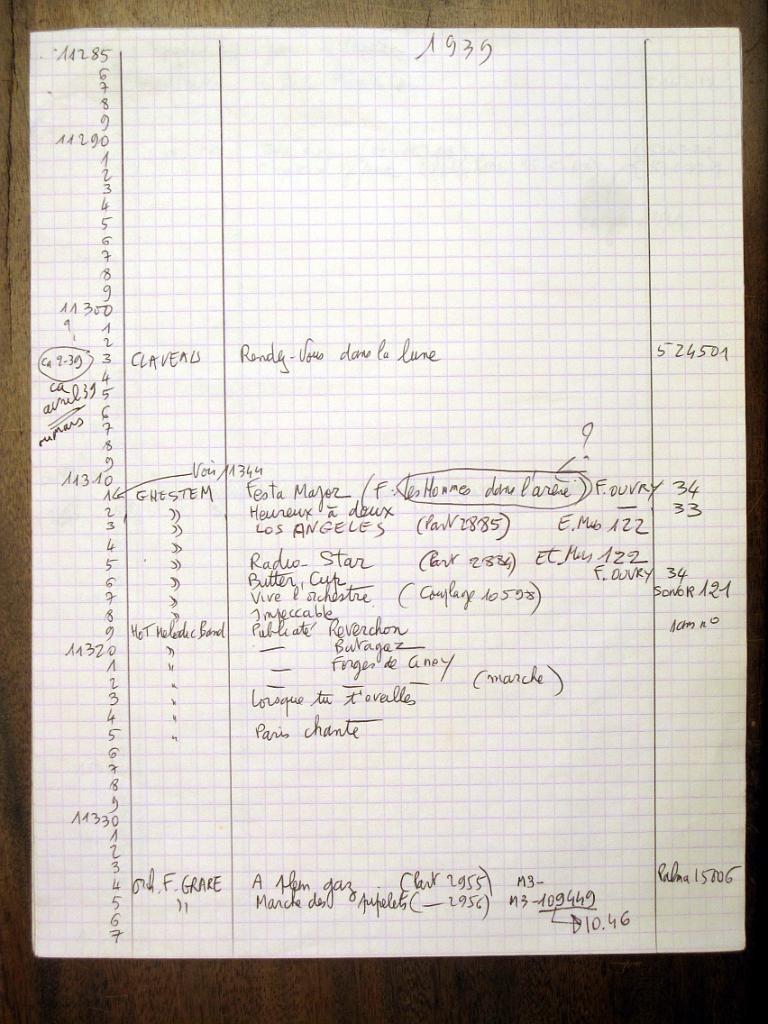 1939
11285
6
7
8
9
11290
1
2
3
4
5
6
7
8
9
11300
? 1
2
ca 2-39 3 CLAVEAU Rendez-Vous dans la lune 524501
4
ca avril 39 5
6
ou mars 7
8
9
11310 Voir 11344 ?
1 GHESTEM Festa Major (F. les Hommes dans l'arène) F. OUVRY 34
2 " Heureux à deux — 33
3 " LOS ANGELES (Part 2885) E. Mus 122
4 "
5 " Radio-Star (Part 2884) Et. Mus 122
6 " Butter, Cup F. OUVRY 34
7 " Vive l'orchestre (Couplage 10598) SONOR 121
8 " Impeccable
9 HOT Melodic Band Publicité Reverchon sans n°
11320 " — Butagaz
1 " — Forges de Ciney
2 " — — — (marche)
3 " Lorsque tu t'éveilles
4 "
5 " Paris chante
6
7
8
9
11330
1
2
3
4 orch. F. GRARE A plein gaz (Part 2955) M3- Palma 15006
5 " Marche des pipelets (— 2956) M3-109449
6 10.46
7